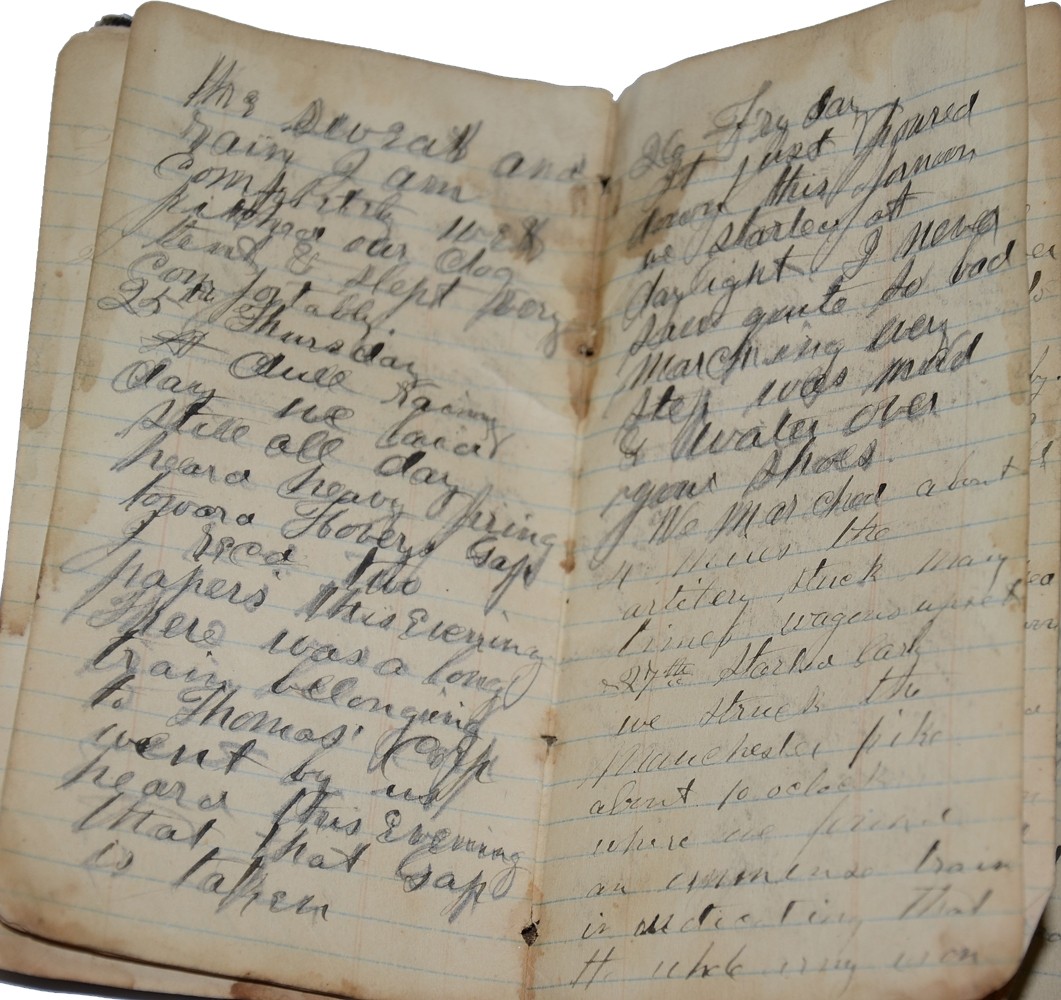 the several and
rain I am
Comfortably wet
pitched our dog
tent & slept very
Comfortably.
25th Thursday
A dull Rainy
day we laid
still all day
heard heavy firing
toward Hoovers Gap
I read two
papers this Evening
There was a long
train belonging
to Thomas' Corp
went by us
heard this Evening
that that Gap
is taken
26 Fryday
It just poured
down this fornoon
we started at
daylight I never
saw quite so bad
marching every
step was mud
& water over
your shoes
We Marched about
4 miles the
artilery stuck many
times wagons upset
27th Started Early
we struck the
Manchester pike
about 10 oclock
where we found
an immense train
indicating that
the whole army was on